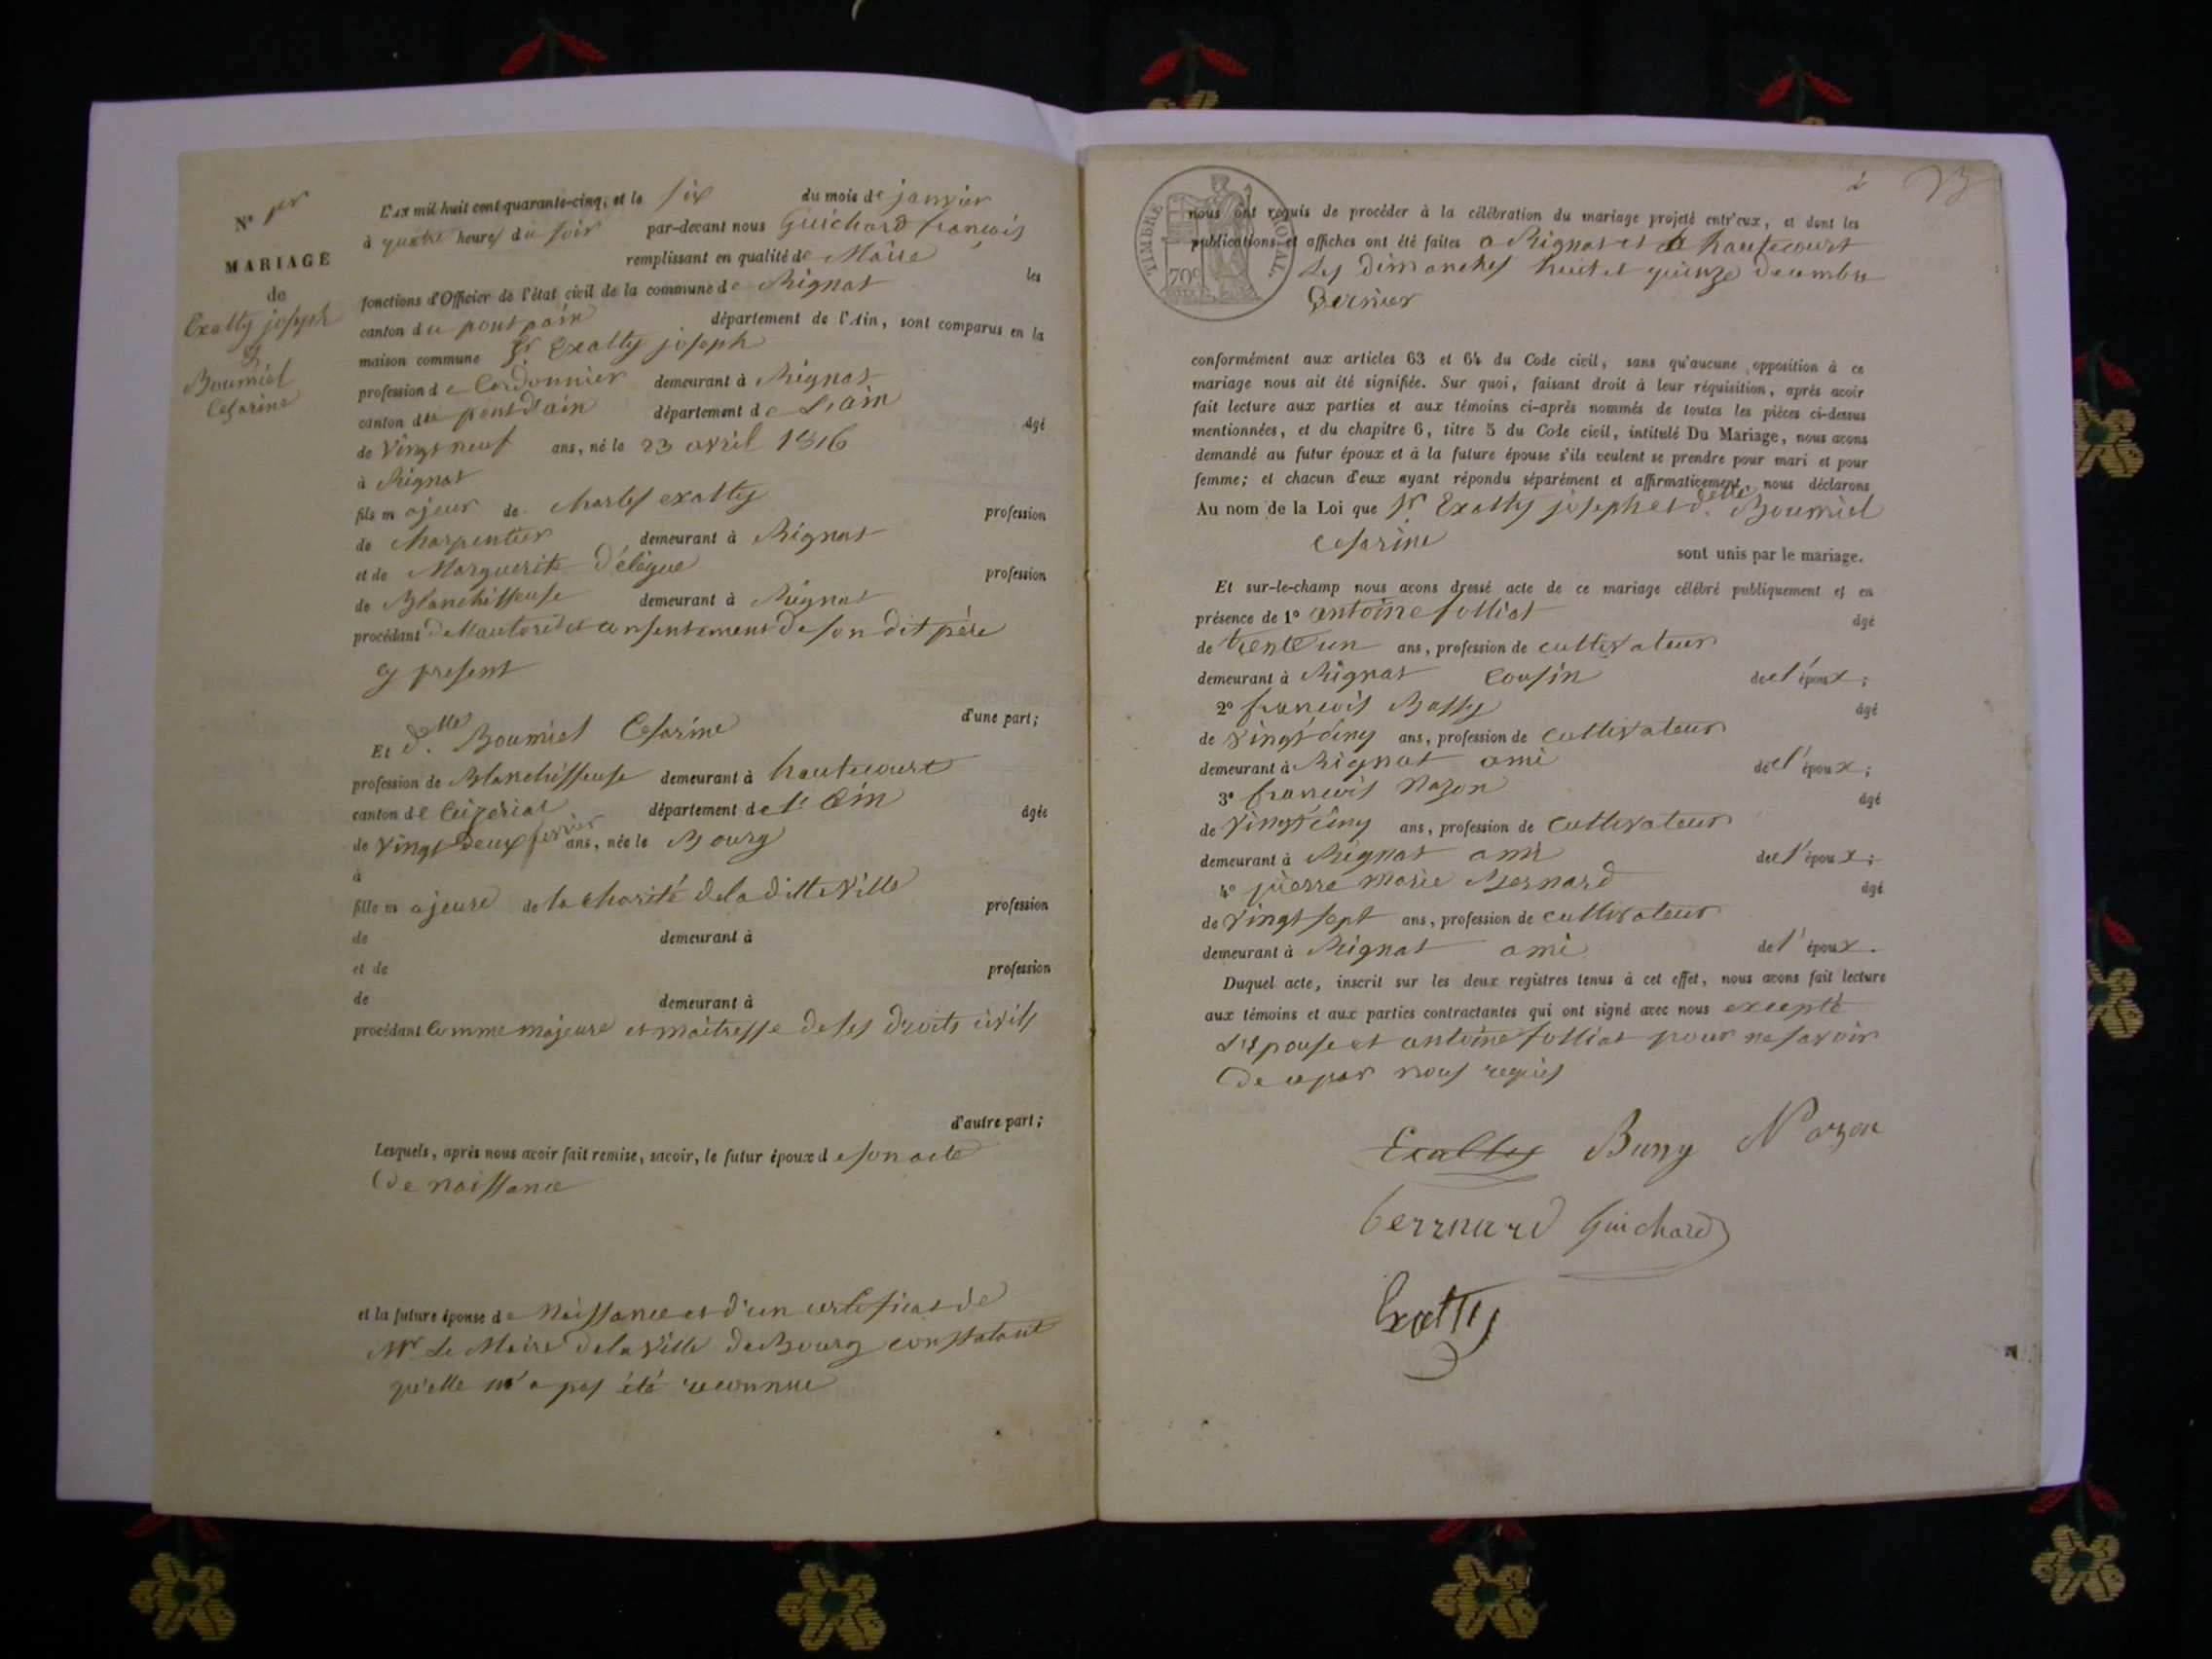 N° 1er
MARIAGE
de
Exalty joseph
&
Boumiel
Cesarine
L'AN mil huit cent quarante-cinq, et le six du mois de janvier
à quatre heures du soir par-devant nous Guichard françois
remplissant en qualité de Maire les
fonctions d'Officier de l'état civil de la commune de Rignat
canton du pont dain département de l'Ain, sont comparus en la
maison commune Sr Exalty joseph
profession de Cordonnier demeurant à Rignat
canton du pont d'ain département de L'ain âgé
de vingt neuf ans, né le 23 avril 1816
à Rignat
fils majeur de Charles exalty profession
de Charpentier demeurant à Rignat
et de Marguerite Délègue profession
de Blanchisseuse demeurant à Rignat
procédant de l'autorité et consentement de son dit père
cy present
d'une part;
Et d.lle Boumiel Cesarine
profession de Blanchisseuse demeurant à hautecourt
canton de Ceizeriat département de l'ain âgée
de vingt deux ans, née le Bourg
à
fille majeure de la Charité de la ditte ville profession
de demeurant à
et de profession
de demeurant à
procédant Comme majeure et maitresse de ses droits civils
d'autre part;
Lesquels, après nous avoir fait remise, savoir, le futur époux de son acte
de naissance
et la future épouse de Naissance et d'un certificat de
Mr Le Maire de la ville de Bourg constatant
qu'elle n'a pas été reconnue
2
TIMBRE ROYAL
70c
nous ont requis de procéder à la célébration du mariage projeté entr'eux, et dont les
publications et affiches ont été faites a Rignat et a hautecourt
Les dimanches huit et quinze decembre
Dernier
conformément aux articles 63 et 64 du Code civil, sans qu'aucune opposition à ce
mariage nous ait été signifiée. Sur quoi, faisant droit à leur réquisition, après avoir
fait lecture aux parties et aux témoins ci-après nommés de toutes les pièces ci-dessus
mentionnées, et du chapitre 6, titre 5 du Code civil, intitulé Du Mariage, nous avons
demandé au futur époux et à la future épouse s'ils veulent se prendre pour mari et pour
femme; et chacun d'eux ayant répondu séparément et affirmativement, nous déclarons
Au nom de la Loi que Sr Exalty joseph et d.elle Boumiel
Cesarine
sont unis par le mariage.
Et sur-le-champ nous avons dressé acte de ce mariage célébré publiquement et en
présence de 1° antoine folliat âgé
de trente un ans, profession de cultivateur
demeurant à Rignat Cousin de l'époux;
2° françois Bassy âgé
de vingt cinq ans, profession de Cultivateur
demeurant à Rignat ami de l'époux;
3° françois Nazon âgé
de vingt cinq ans, profession de Cultivateur
demeurant à Rignat ami de l'époux;
4° pierre marie Bernard âgé
de vingt sept ans, profession de cultivateur
demeurant à Rignat ami de l'époux.
Duquel acte, inscrit sur les deux registres tenus à cet effet, nous avons fait lecture
aux témoins et aux parties contractantes qui ont signé avec nous excepté
L'épouse et antoine folliat pour ne savoir
de ce par nous requis
Exalty Nazon
berrnard Guichard
Exalty